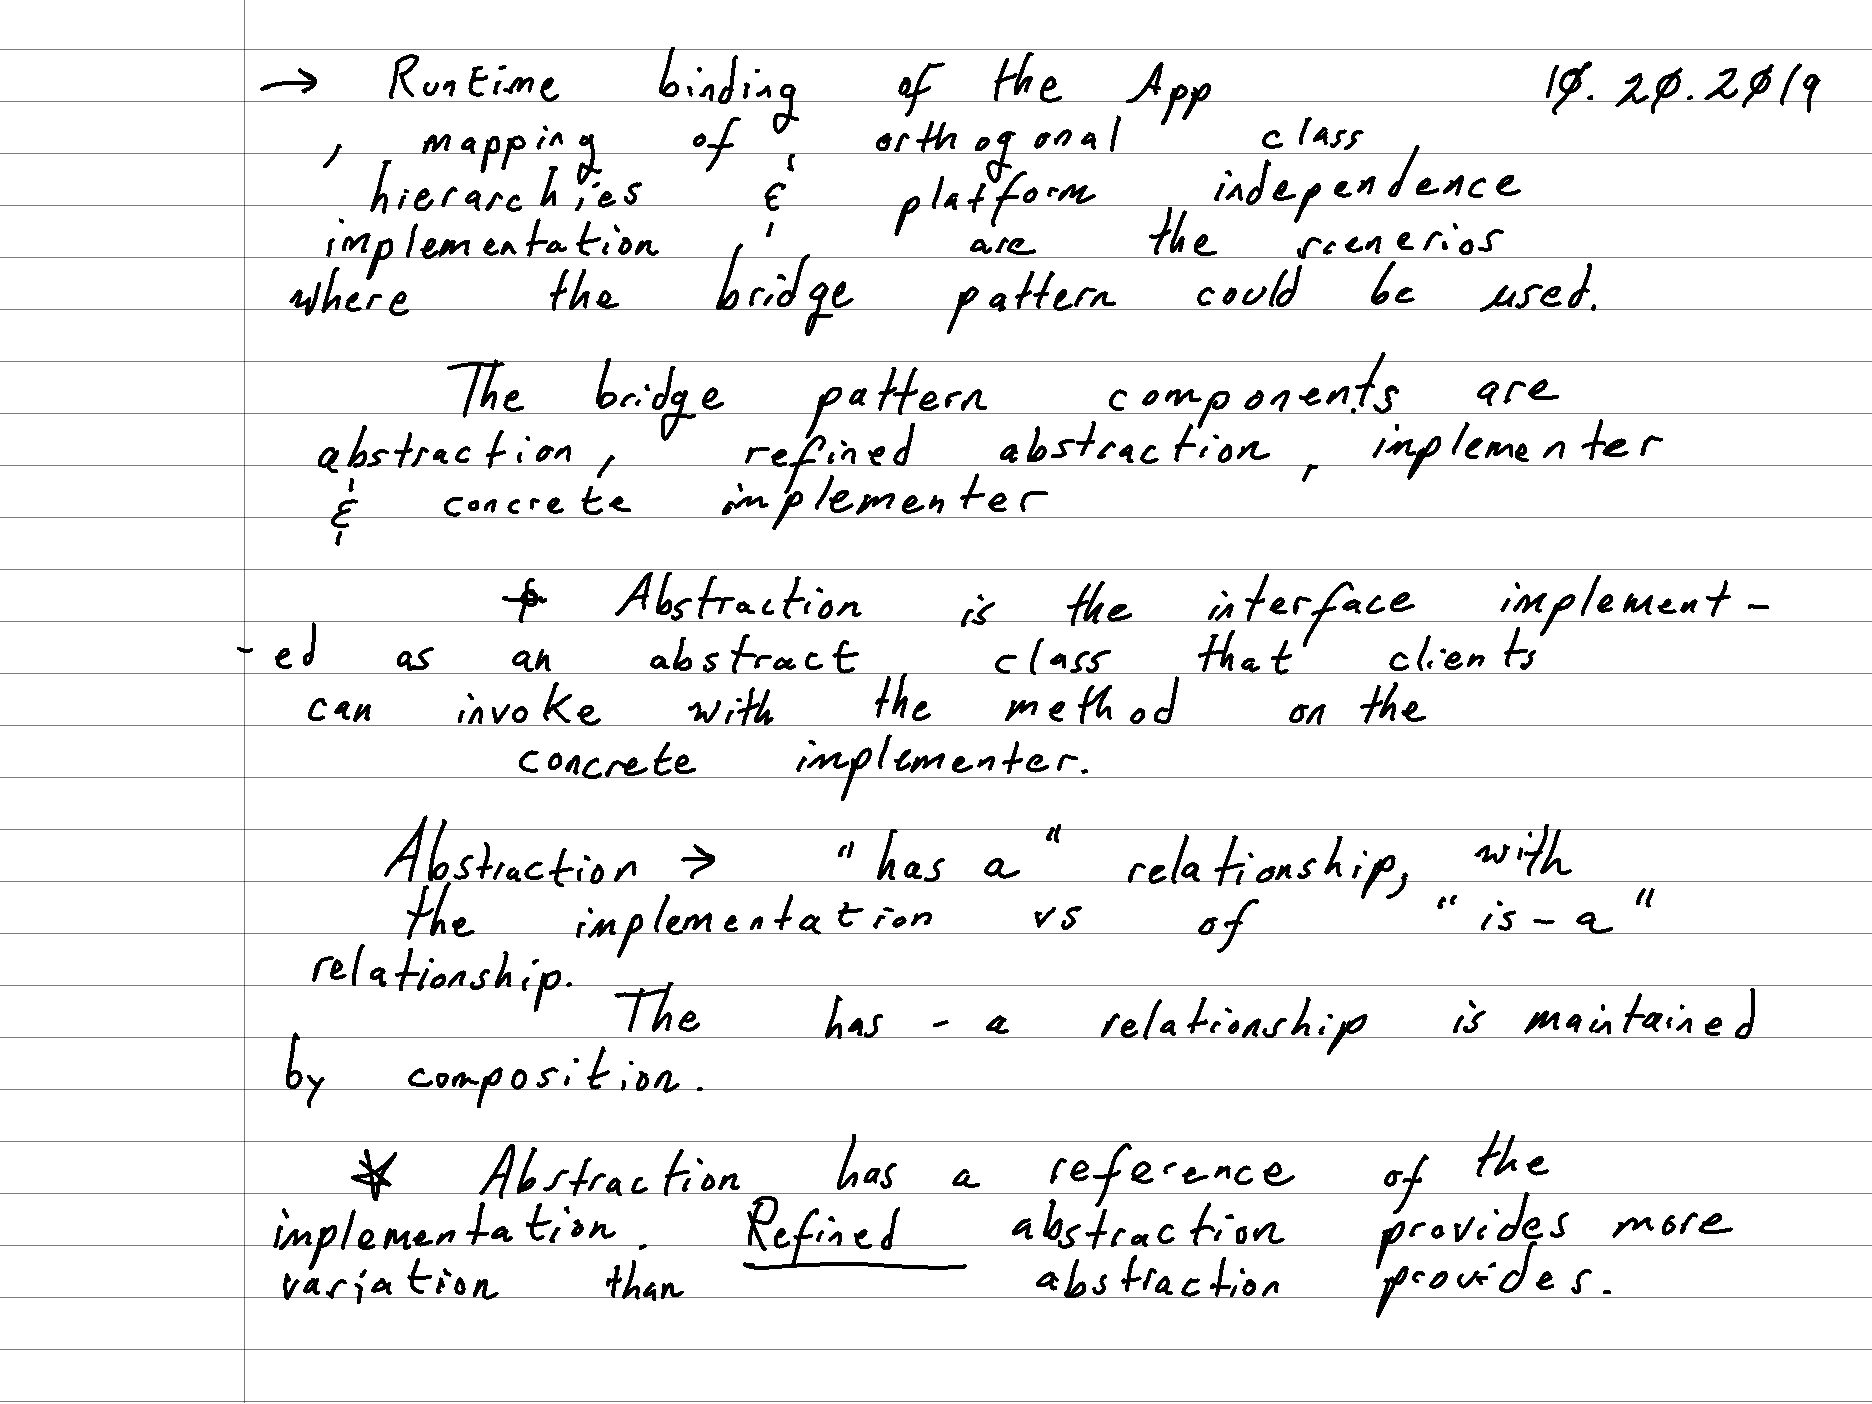 → Runtime binding of the App 10.20.2019
, mapping of orthogonal class
hierarchies & platform independence
implementation, are the scenerios
where the bridge pattern could be used.
The bridge pattern components are
abstraction, refined abstraction, implementer
& concrete implementer
Abstraction is the interface implement-
-ed as an abstract class that clients
can invoke with the method on the
concrete implementer.
Abstraction → "has a" relationship, with
the implementation vs of "is-a"
relationship.
The has-a relationship is maintained
by composition.
* Abstraction has a reference of the
implementation. Refined abstraction provides more
variation than abstraction provides.